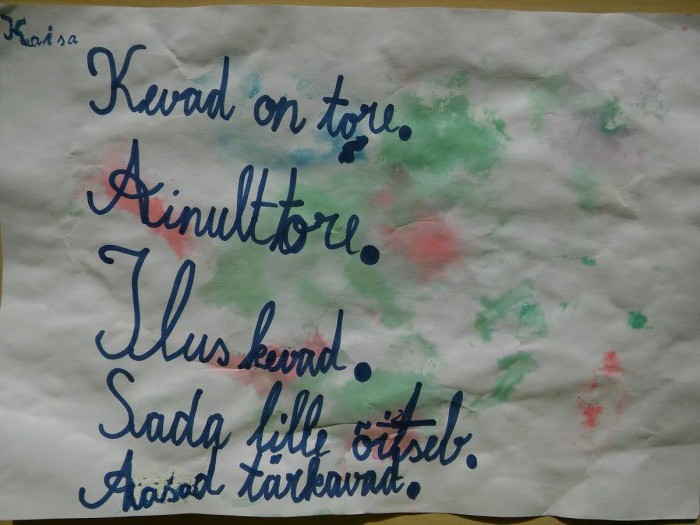 Kaisa
Kevad on tore.
Ainult tore.
Ilus kevad.
Sada lille õitseb.
Aasad tärkavad.